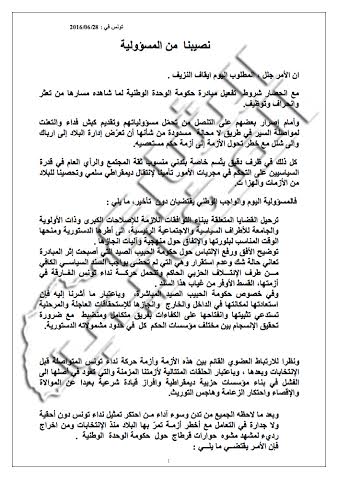 تونس في : 2016/06/28
نصيبنا من المسؤولية
ان الأمر جلل ، المطلوب اليوم ايقاف النزيف .
مع انحصار شروط تفعيل مبادرة حكومة الوحدة الوطنية لما شاهده مسارها من تعثر
وانحراف وتوظيف.
وأمام إصرار بعضهم على التنصل من تحمّل مسؤولياتهم وتقديم كبش فداء والتعنت
لمواصلة السير في طريق لا محالة مسدودة من شأنها أن تعرّض إدارة البلاد إلى ارباك
والى شلل مع خطر تحول الأزمة إلى أزمة حكم مستعصية.
كل ذلك في ظرف دقيق يتّسم خاصة بتدني منسوب ثقة المجتمع والرأي العام في قدرة
السياسيين على التحكم في مجريات الأمور تأمينا لإنتقال ديمقراطي سلمي وتحصينا للبلاد
من الأزمات والهزات.
فالمسؤولية اليوم والواجب الوطني يقتضيان دون تأخير، ما يلي :
ترحيل القضايا المتعلقة ببناء التوافقات اللازمة للإصلاحات الكبرى وذات الأولوية
والجامعة للأطراف السياسية والاجتماعية الرئيسية، الى أطرها الدستورية ومنحها
الوقت المناسب لبلورتها والإتفاق حول منهجية وآليات انجازها .
توضيح الأفق ورفع الإلتباس حول حكومة الحبيب الصيد التي أصبحت إثر المبادرة
تعاني حالة شك وعدم استقرار وهي التي لم تحضى بواجب السند السياسي الكافي
من طرف الإئتلاف الحزبي الحكم وتتحمل حركة نداء تونس الغارقة في
أزمتها، القسط الأوفر من غياب هذا السند .
وفي خصوص حكومة الحبيب الصيد المباشرة، وباعتبار ما أشرنا إليه فإن
استعادتها لمكانتها في الداخل والخارج وانجازها للإستحقاقات العاجلة والملحة
تستدعي تثبيتها وانفتاحها على الكفاءات بفريق متكامل ومنضبط مع ضرورة
تحقيق الإنسجام بين مختلف مؤسسات الحكم كل في حدود مشمولاته الدستورية.
ونظرا للارتباط العضوي القائم بين هذه الأزمة وأزمة حركة نداء تونس المتواصلة قبل
الإنتخابات وبعدها ، وباعتبار الحلقات المتتالية لأزمتنا المزمنة والتي تعود في أصلها الى
الفشل في بناء مؤسسات حزبية ديمقراطية وافراز قيادة شرعية بعيدا عن الموالاة
والإقصاء واحتكار الزعامة وهاجس التوريث.
وبعد ما لاحظه الجميع من تدن وسوء أداء من احتكر تمثيل نداء تونس دون أحقية
ولا جدارة في التعامل مع أخطر أزمة تمرّ بها البلاد منذ الإنتخابات ومن اخراج
رديء لمشهد مشوه حوارات قرطاج حول حكومة الوحدة الوطنية .
فإن الأمر يقتضي ما يلي :
1